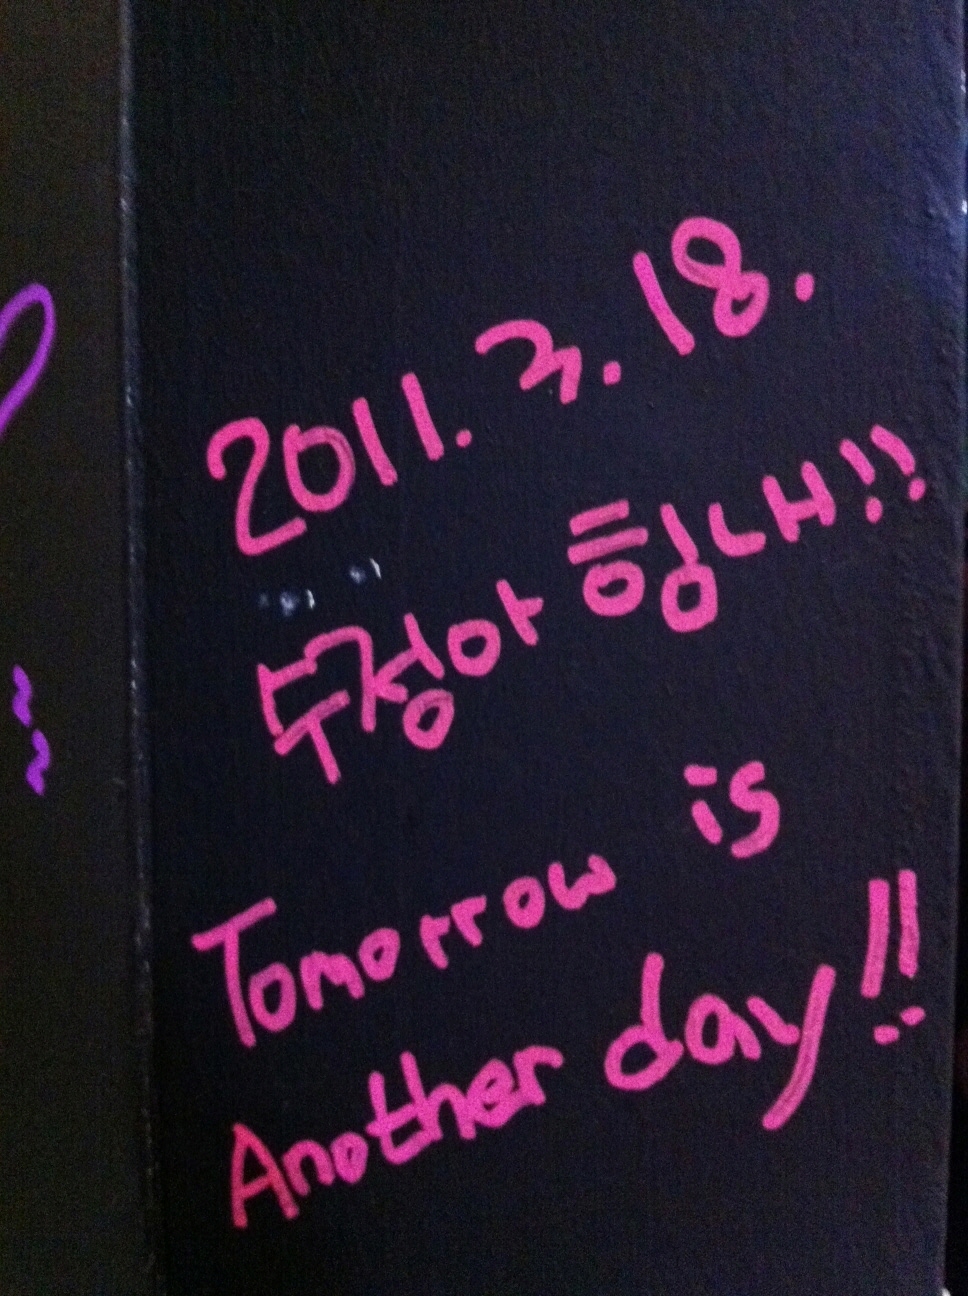 2011. 3. 18.
두정아 힝내!!
Tomorrow is
Another day!!